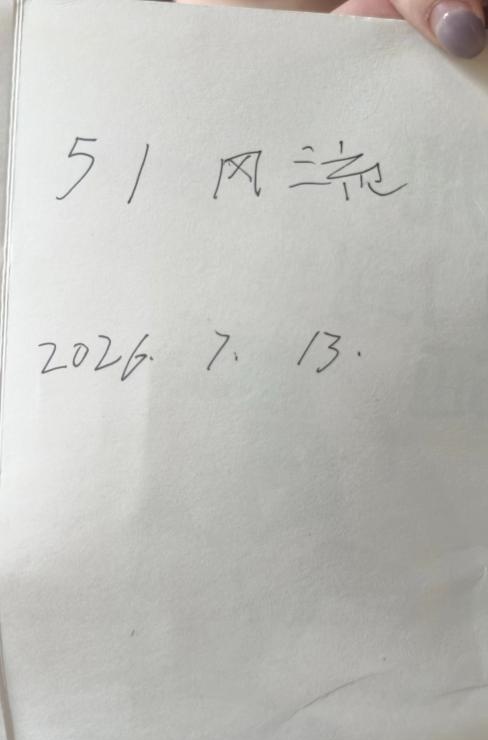 51 风流
2026. 7. 13.